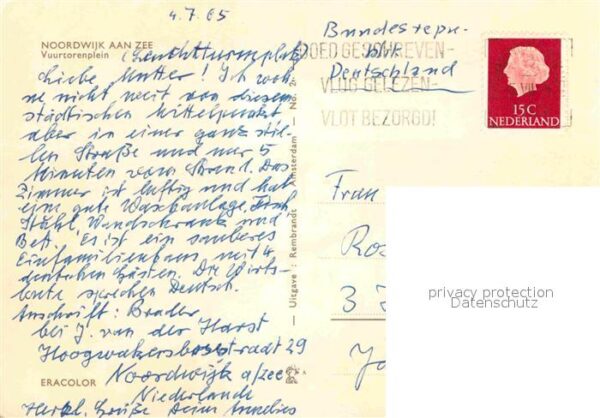 4.7.65
NOORDWIJK AAN ZEE
Vuurtorenplein
(Leuchtturmplatz
Liebe Mutter! Ich woh-
ne nicht weit von diesem
städtischen Mittelpunkt
aber in einer ganz stil-
len Straße und nur 5
Minuten vom Strand. Das
Zimmer ist luftig und hat
eine gute Waschanlage, Tisch,
Stuhl, Wandschrank und
Bett. Es ist ein sauberes
Einfamilienhaus mit 4
deutschen Gästen. Die Wirts-
leute sprechen Deutsch.
Anschrift: Brader
bei J. van der Harst
Hoogwakersbosstraadt 29
Noordwijk a/zee
Niederlande
Herzl. Grüße Deine Annelies
ERACOLOR
Uitgave: Rembrandt Amsterdam No.
Bundesrepu-
blik
Deutschland
GOED GESCHREVEN-
VLUG GELEZEN-
VLOT BEZORGD!
15 C
NEDERLAND
Frau
Ro
3
privacy protection
Datenschutz